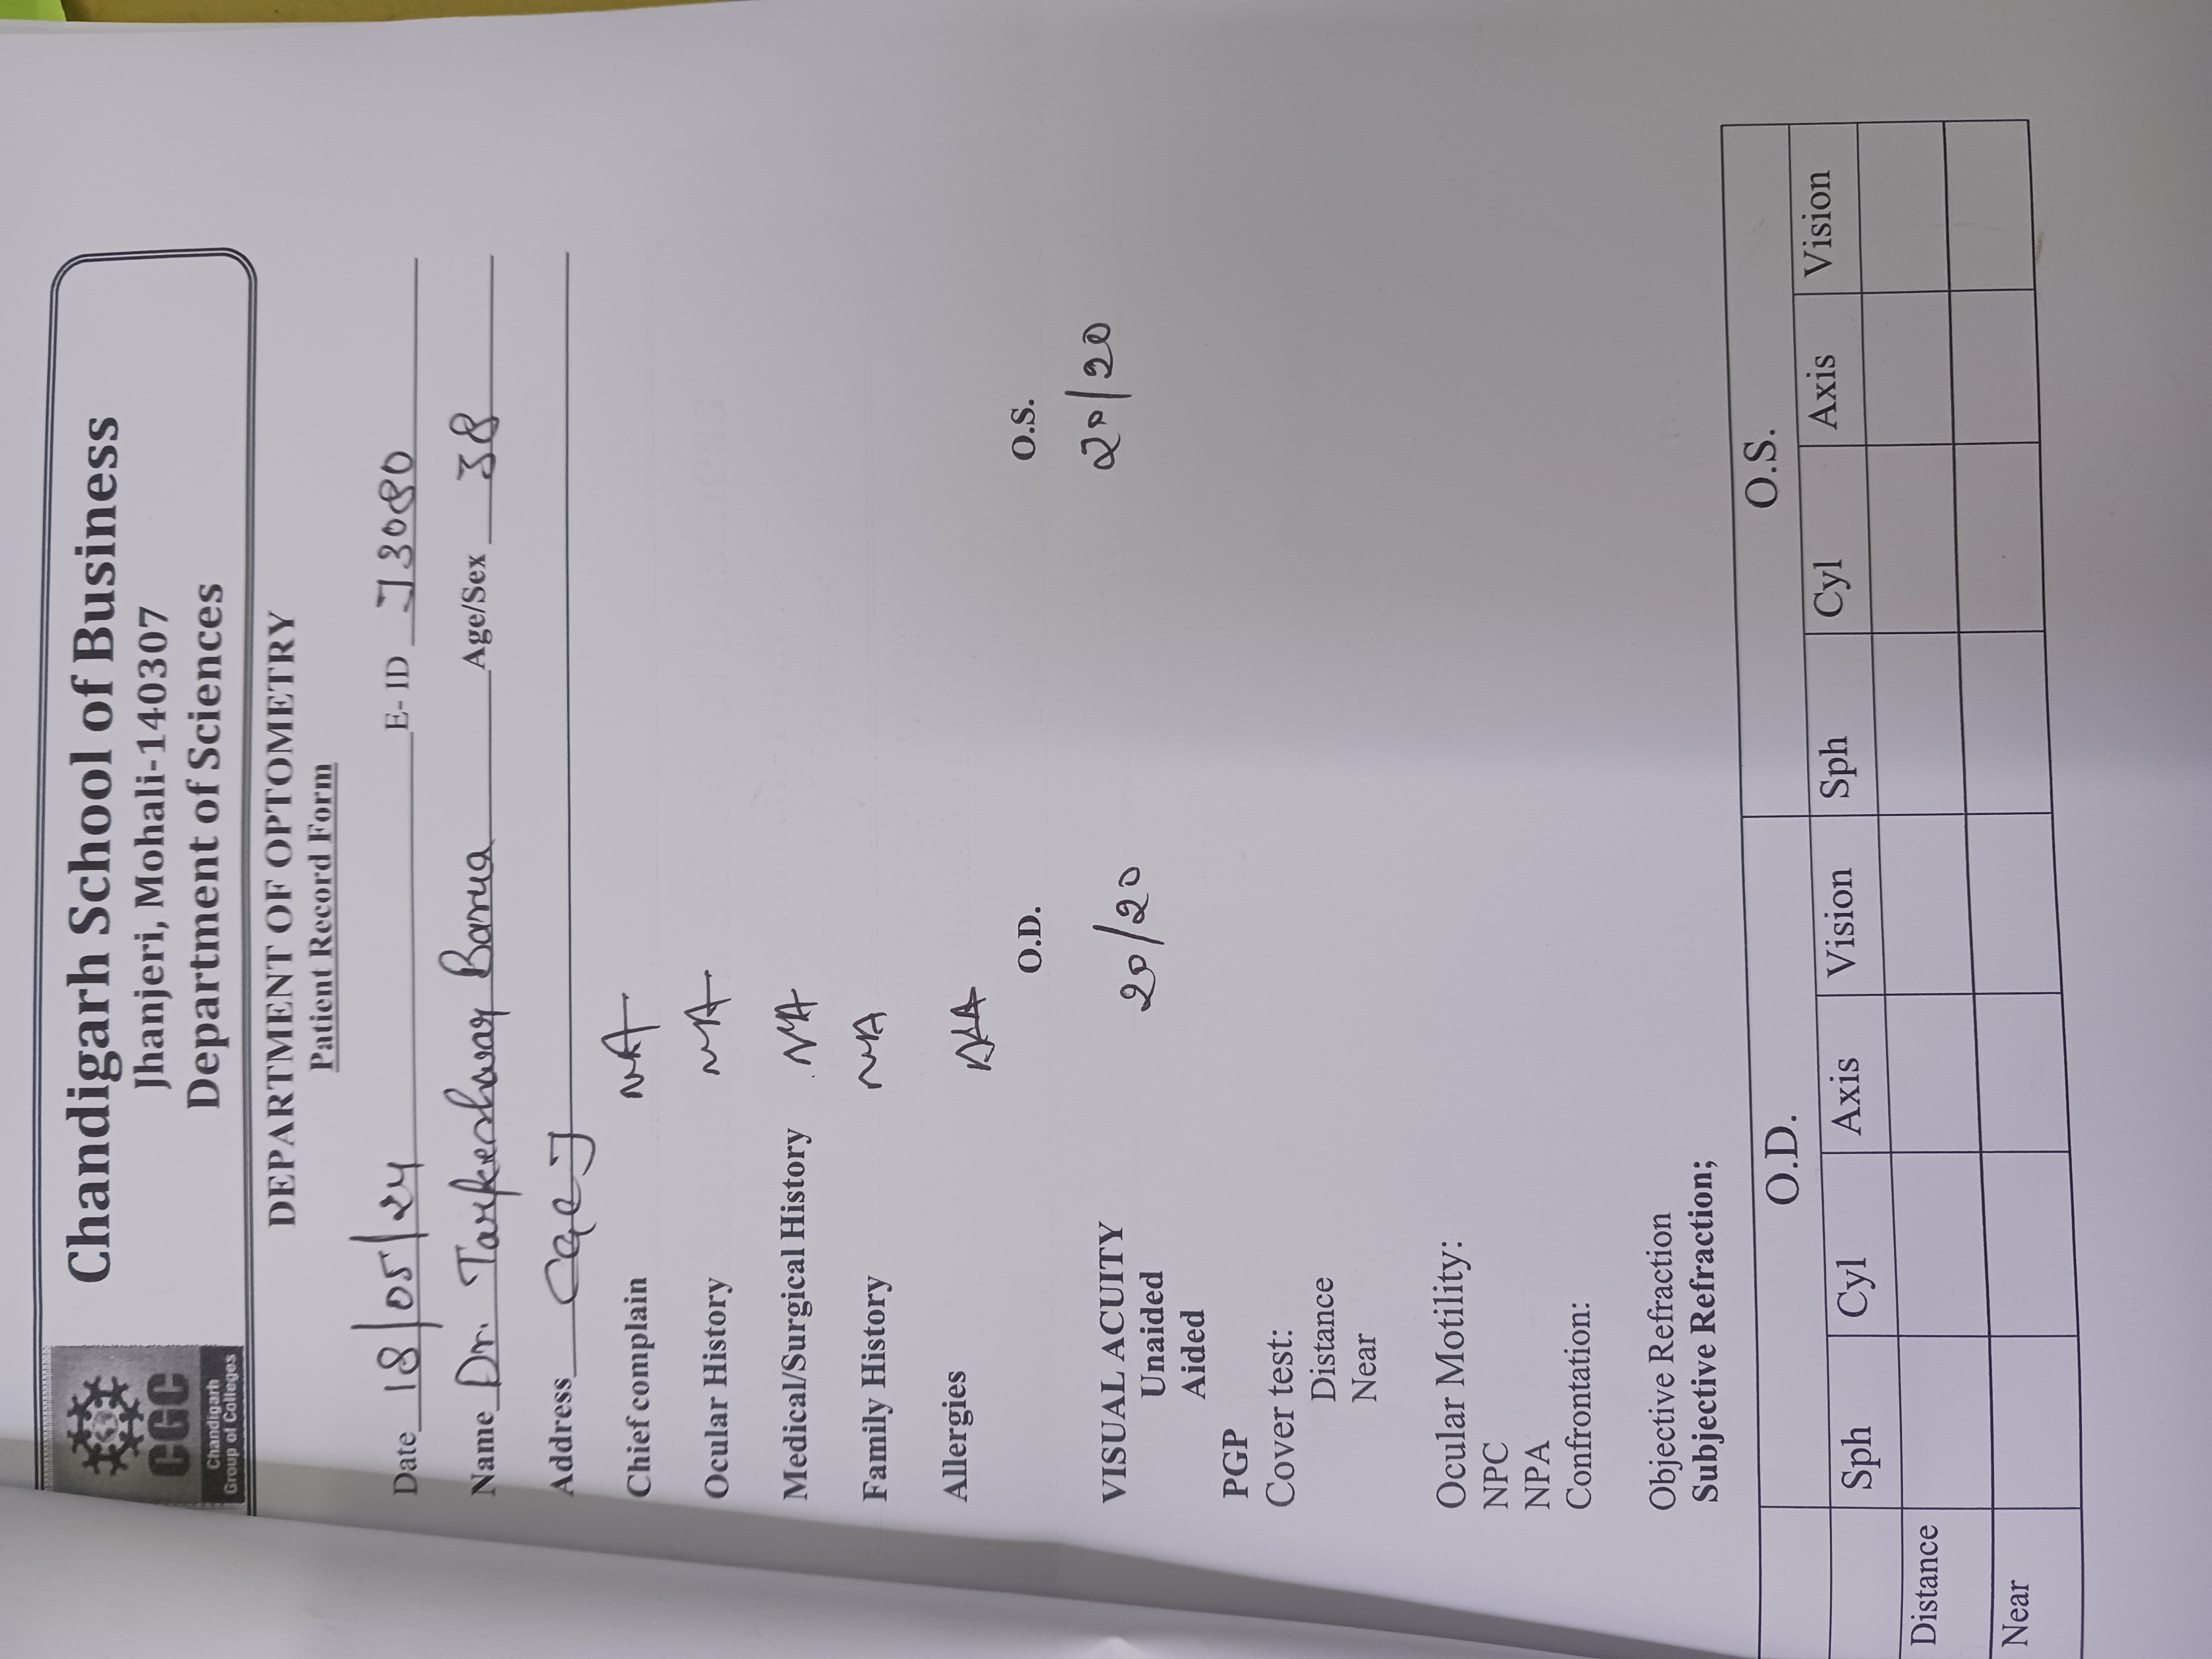 CGC
Chandigarh
Group of Colleges
Chandigarh School of Business
Jhanjeri, Mohali-140307
Department of Sciences
DEPARTMENT OF OPTOMETRY
Patient Record Form
Date 18/05/24 E- ID J3080
Name Dr. Tarkeshwar Barua Age/Sex 38
Address CGCJ
Chief complain NA
Ocular History NA
Medical/Surgical History NA
Family History NA
Allergies NA
O.D. O.S.
VISUAL ACUITY 20/20 20/20
Unaided
Aided
PGP
Cover test:
Distance
Near
Ocular Motility:
NPC
NPA
Confrontation:
Objective Refraction
Subjective Refraction;
O.D. O.S.
Sph Cyl Axis Vision Sph Cyl Axis Vision
Distance
Near